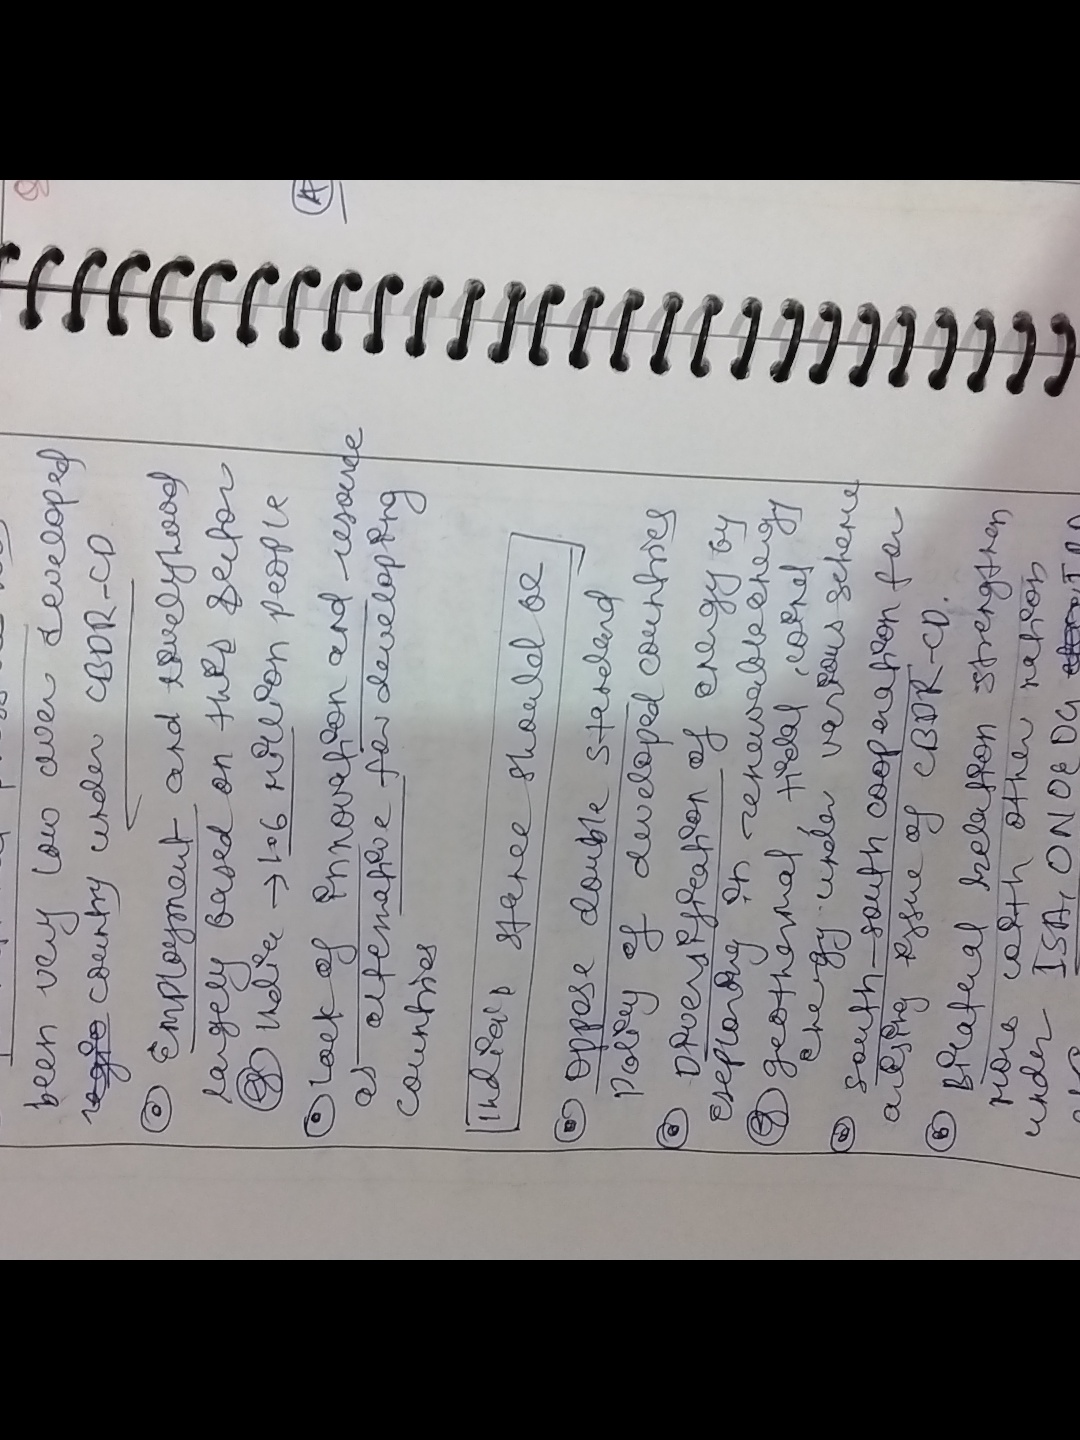 been very low over developed
country under CBDR-CD
Employment and livelyhood
largely based on this sector
eg India → 1.6 million people
Lack of innovation and resource
as alternative for developing
countries
India's stance should be
Oppose double standard
Policy of developed countries
Diversification of energy by
exploring in renewable energy
eg geothermal, tidal,
energy under various scheme
South-south cooperation for
arising issue of CBDR-CD.
Bilateral relation strengthen
more with other nation
under ISA, ONOEOG
A